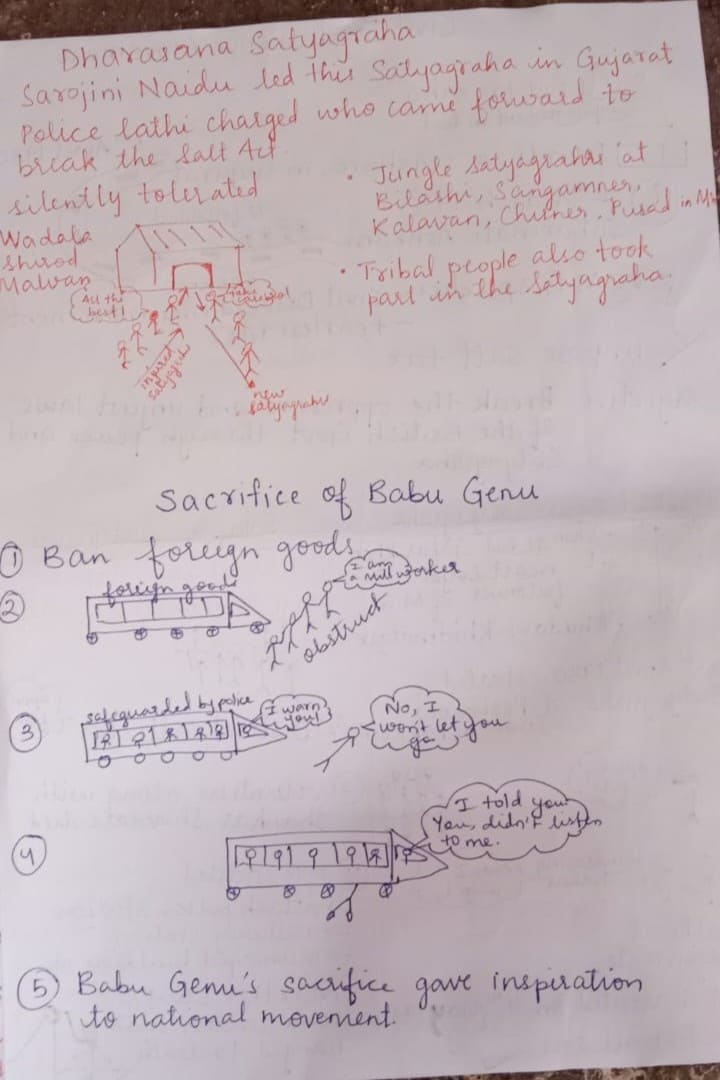 Dharasana Satyagraha
Sarojini Naidu led this Satyagraha in Gujarat
Police lathi charged who came forward to
break the Salt Act
silently tolerated
Wadala
Shirod
Malvan
• Jungle Satyagraha at
Bilashi, Sangamner,
Kalavan, Chirner, Pusad in
• Tribal people also took
part in the Satyagraha.
All the
best!
injured
satyagrahi
new
satyagrahi
Sacrifice of Babu Genu
① Ban foreign goods
②
foreign goods
I am
a mill worker
obstruct
③
safeguarded by police
I warn
you!
No, I
won't let you
go
④
I told you
You, didn't listen
to me.
⑤ Babu Genu's sacrifice gave inspiration
to national movement.